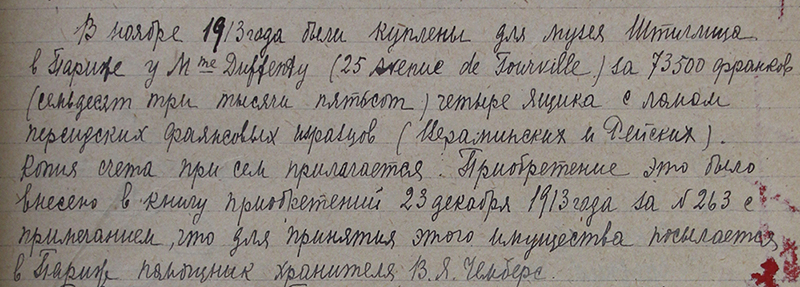 В ноябре 1913 года были куплены для музея Штиглица
в Париже у Mme Duffeuty (25 avenue de Tourville) за 73500 франков
(семьдесят три тысячи пятьсот) четыре ящика с ломом
персидских фаянсовых изразцов (Вераминских и Рейских).
Копия счета при сем прилагается. Приобретение это было
внесено в книгу приобретений 23 декабря 1913 года за N 263 с
примечанием, что для принятия этого имущества посылается
в Париж помощник хранителя В. Я. Чемберс.